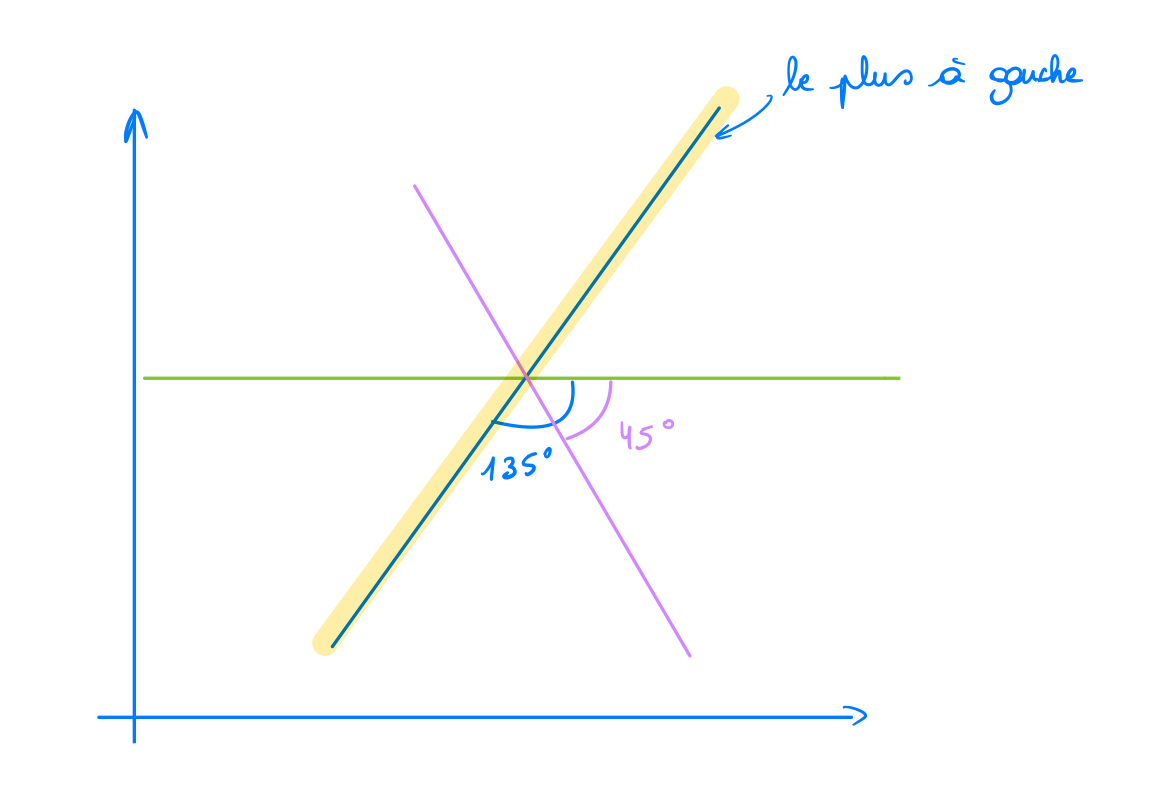 le plus à gauche
45°
135°